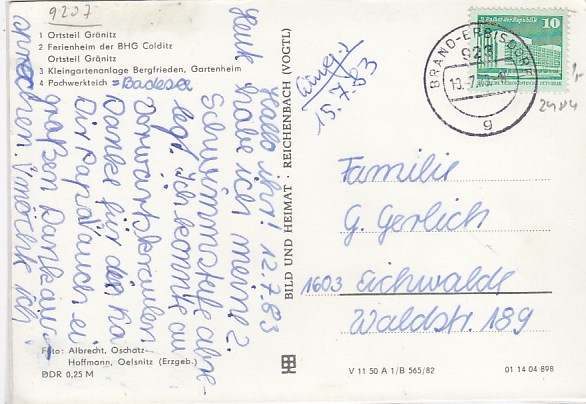 9207
1 Ortsteil Gränitz
2 Ferienheim der BHG Colditz
Ortsteil Gränitz
3 Kleingartenanlage Bergfrieden, Gartenheim
4 Pochwerkteich = Badesee
Hallo ihr! 12.7.83
Heute habe ich meine 2.
Schwimmstufe abge-
legt. Ich konnte au
Vorwärtskraulen
Danke für den Ka
Dir Papa auch ei
großen Dank au
sprechen. Möchte ich
Foto: Albrecht, Oschatz
Hoffmann, Oelsnitz (Erzgeb.)
DDR 0,25 M
BILD UND HEIMAT · REICHENBACH (VOGTL)
15.7.83
Palast der Republik 10
BRAND-ERBISDORF
923
g
2484
Familie
G. Gerlich
1603 Eichwalde
Waldstr. 189
V 11 50 A 1/B 565/82
01 14 04 898